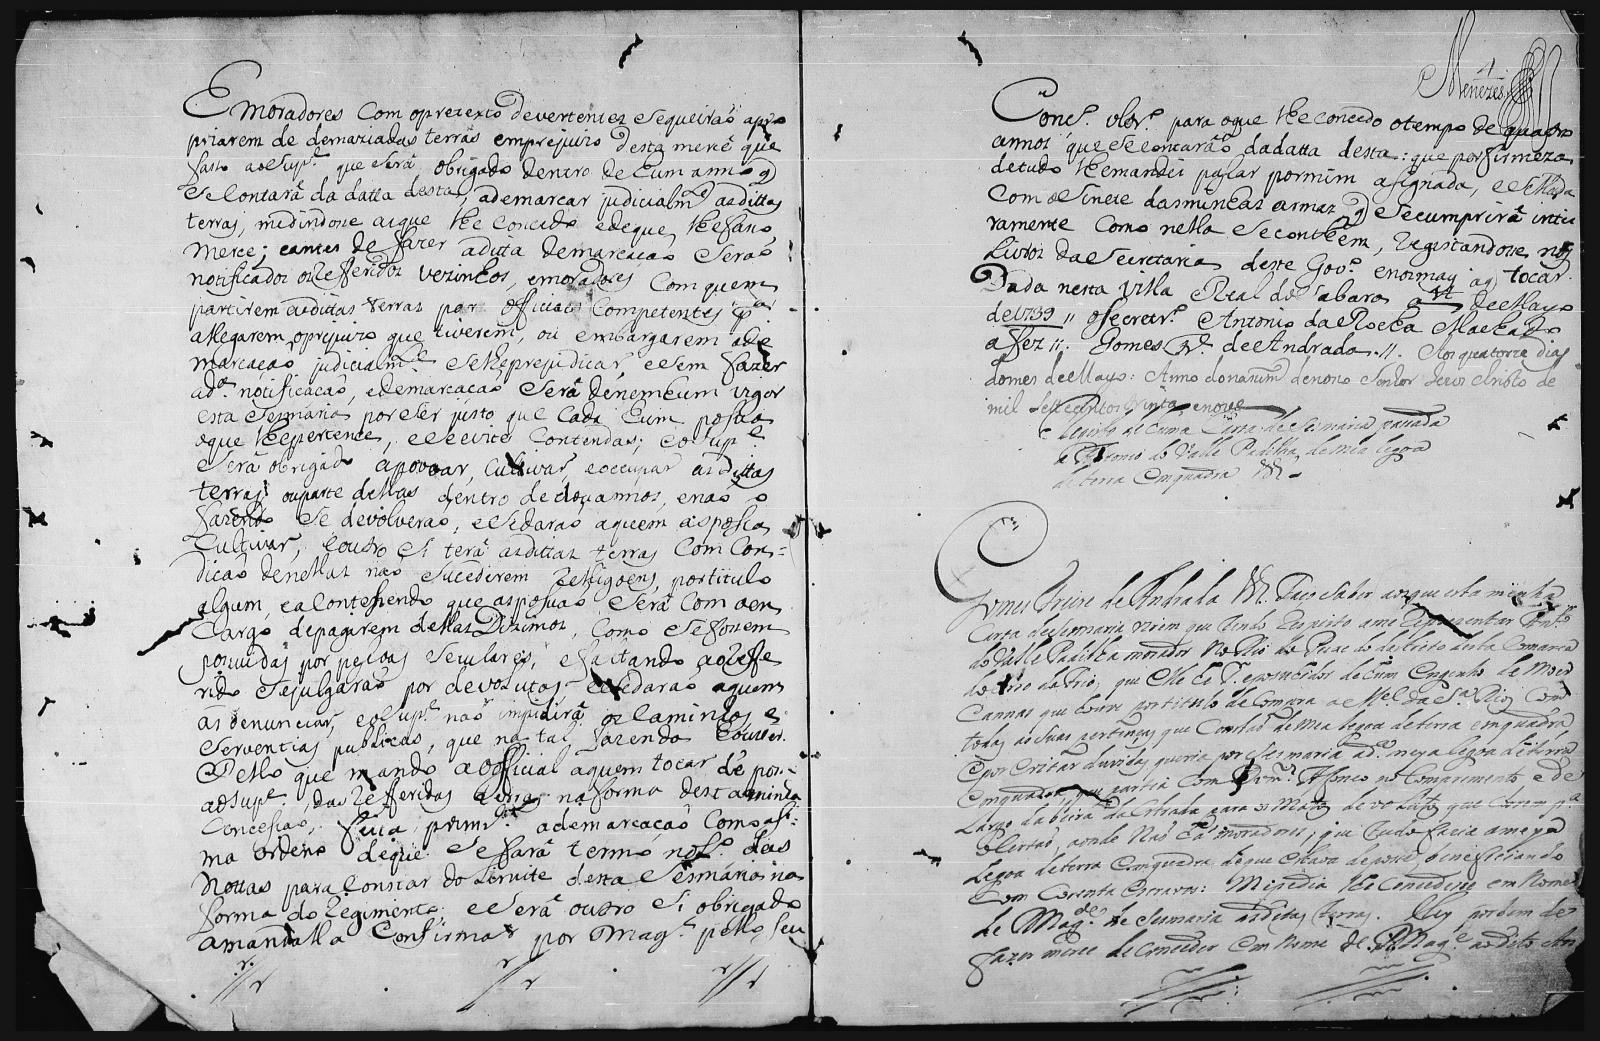 E moradores com opretexto devertentes Sequeirão apro
priarem de demaziadas terras emprejuizo desta mercê que
faço aoSupᵉ. que Será obrigado dentro de hum anno q̃
Se Contará da datta desta, ademarcar judicialmᵗᵉ asdittas
terras, medindose asque lhe concedo edeque lhe faço
merce; eantes de fazer aditta demarcação Serão
notificados os Refferidos vezinhos, emoradores Com quem
partirem asdittas terras por officiais Competentes pᵃ
allegarem oprejuizo que tiverem, ou embargarem ade
marcação judicialmᵉ Selheprejudicar, eSem fazer
adᵃ notificação, edemarcação Será denenhum vigor
esta Sesmaria por Ser justo que Cada hum possua
oque lhepertence, eSeevite Contendas; eoSupᵉ
Será obrigado apovoar, Cultivar, eoccupar asdittas
terras ouparte dellas dentro de dous annos, enaõ o
fazendo Se devolverão, eSedarão aquem aspossa
Cultivar, eoutro Si terá asdittas terras Com Con=
dição denellas não Sucederem Relligioens, portitulo
algum, eaContessendo que aspossuão Será Com oen
Cargo depagarem dellas Dizimos, Como Sefossem
possuidas por pessoas Seculares, efaltando aoReffe
rido Sejulgarão por devolutas eSedarão aquem
as denunciar, eoSupᵉ não impidirá os Caminhos e
Serventias publicas, que na tal fazenda houver.
Pello que mando aoofficial aquem tocar dê posse
aoSupᵉ das Refferidas terras na forma desta minha
Concessão, feita primrᵒ ademarcação Como asi=
ma ordeno deque Se fará termo noLᵒ das
Nottas para Constar do Limite desta Sesmaria na
forma do Regimento; eSerá outro Si obrigado
amandalla Confirmar por S Magᵉ pello Seu
4
Menezes
Consᵒ. Ultrᵒ. para oque lhe concedo otempo de quatro
annos que Se Contarão dadatta desta: que porfirmeza
detudo lhemandei passar pormim asignada, eSellada
Com oSinete dasminhas armas q̃ Secumprirá intei
ramente Como nella Secontẽem, Registandose nos
Livros daSecretaria deste Govᵒ. enosmais aq̃ tocar.
Dada nesta Villa Real do Sabara a 14 deMayo
de 1739 // oSecretrᵒ. Antonio daRocha Machado
afez //: Gomes Frᵉ. deAndrada. //. Aos quatorze dias
domes deMayo: Anno donascimᵗᵒ denosso Senhor Jezus Christo de
mil Settecentos trinta enove
Registo de huma Carta de Sesmaria passada
a Antonio do Valle Padilha, de mea legoa
deterra Emquadra
Gomes Freire de Andrada Faço Saber aosque esta minha
Carta deSesmaria virem que tendo Respeito ame Representar Antᵒ
doValle Padilha morador no Rio do Peixe do destrito desta Comarca
do Serro do frio, que elle hé Sr. epossuidor de hum Engenho de Moer
Cannas que houve portitulo deCompra a Mᵉˡ daSᵃ Rios Com
todas as suas pertenças que Constão de Mea legoa deterra emquadra
Epor Evitar duvidas queria por Sesmaria adᵃ meya legoa deterra
Emquadra que partia Com Affonço no Comprimento, e de
Largo dabeira daEstrada para os Mattos devolutos
obSertão, aonde Não há moradores, que tudo fazia ameya
Legoa deterra Emquadra deque estava deposse, beneficiando
Com Corenta Escravos: Mepedia lhe Concedesse em Nome
de S Magᵈᵉ de Sesmaria asditas terras. Hey porbem de
fazer merce de Conceder Em Nome de S Magᵉ aodito An